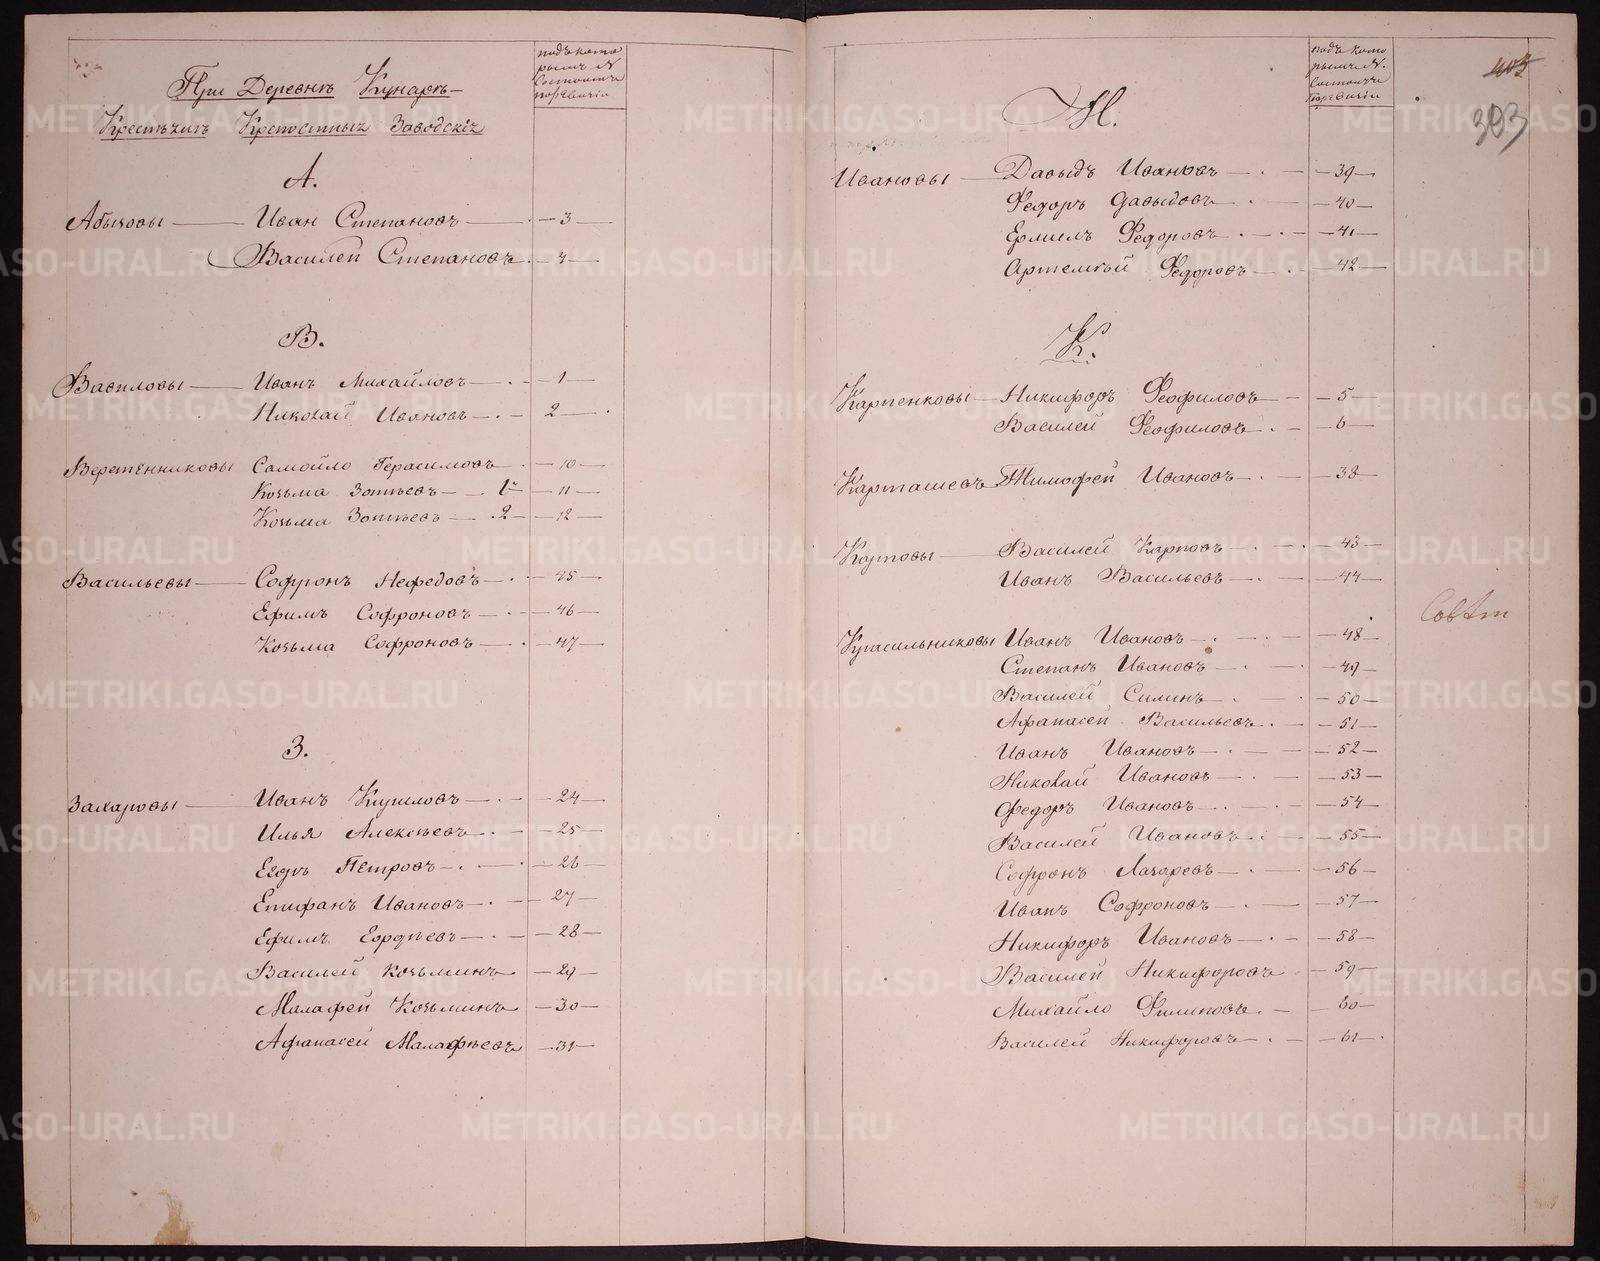 При Деревнѣ Кунаръ-
Крестьянъ Крепостныхъ Заводскіх
подъ кото
рымъ №
Состоитъ
по ревизіи
А.
Абызовы — Иван Степановъ — 3 —
Василей Степановъ — 4 —
В.
Вавиловы — Иванъ Михайловъ — 1 —
Николай Ивановъ — 2 —
Веретенниковы Самойло Герасимовъ — 10 —
Козьма Зотѣевъ — 1й — 11 —
Козьма Зотѣевъ — 2 — 12 —
Васильевы — Софронъ Нефедовъ — 45 —
Ефимъ Софроновъ — 46 —
Козьма Софроновъ — 47 —
З.
Захаровы — Иванъ Кириловъ — 24 —
Илья Алексѣевъ — 25 —
Егоръ Петровъ — 26 —
Епифанъ Ивановъ — 27 —
Ефимъ Гордѣевъ — 28 —
Василей Козьминъ — 29 —
Малафей Козьминъ — 30 —
Афанасей Малафѣевъ — 31 —
подъ кото
рымъ №.
Состоитъ
по ревизіи
403
393
И.
Ивановы — Давыдъ Ивановъ — 39 —
Федоръ Давыдовъ — 40 —
Ермилъ Федоровъ — 41 —
Артемѣй Федоровъ — 42 —
К.
Карпенковы — Никифоръ Феофиловъ — 5 —
Василей Феофиловъ — 6 —
Карташевъ Тимофей Ивановъ — 38 —
Карповы — Василей Карповъ — 43 —
Иванъ Васильевъ — 44 —
Иванъ Ивановъ — 48 —
Степанъ Ивановъ — 49 —
Василей Силинъ — 50 —
Афанасей Васильевъ — 51 —
Иванъ Ивановъ — 52 —
Николай Ивановъ — 53 —
Федоръ Ивановъ — 54 —
Василей Ивановъ — 55 —
Софронъ Лазаревъ — 56 —
Иванъ Софроновъ — 57 —
Никифоръ Ивановъ — 58 —
Василей Никифоровъ — 59 —
Михайло Филиповъ — 60 —
Василей Никифоровъ — 61 —
METRIKI.GASO-URAL.RU